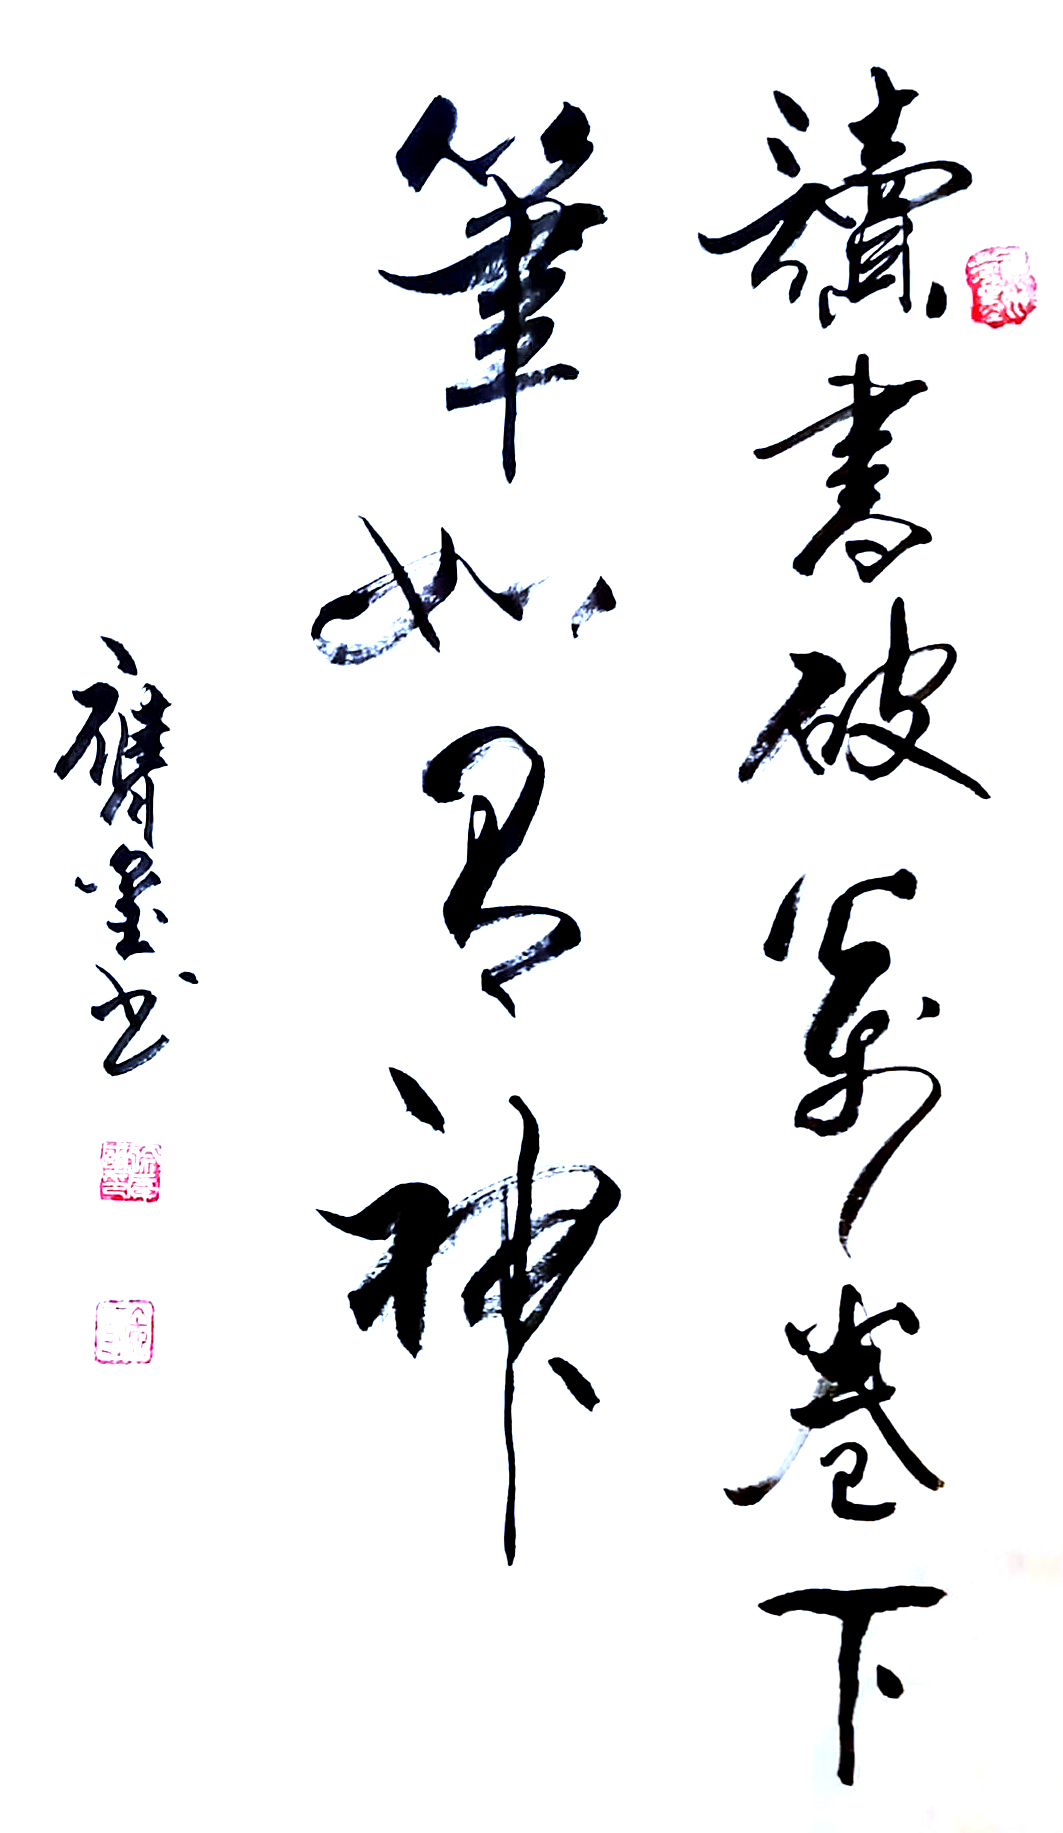 讀書破萬卷下
筆如有神
墨书